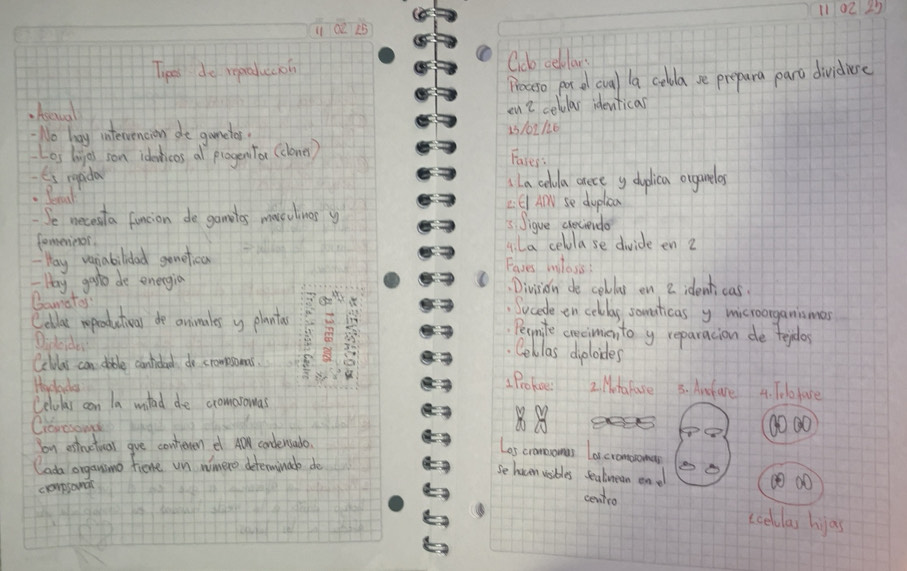 11 02 25
Tipos de reproducción
• Asexual
- No hay intervencion de gametos.
- Los hijos son identicos al progenitor (clones)
- Es rapida
• Sexual
- Se necesita funcion de gametos masculinos y
femeninos.
- Hay variabilidad genetica
- Hay gasto de energia
Gametos
Celulas reproductivas de animales y plantas
Diploides
Celulas con doble cantidad de cromosomas.
Haploide
Celulas con la mitad de cromosomas
Cromosomas
Son estructuras que contienen el ADN condensado.
Cada organismo tiene un numero determinado de
cromosomas
REVISADO
13 FEB 2025
11 02 25
Ciclo celular:
Proceso por el cual la celula se prepara para dividirse
en 2 celulas identicas
13/02/26
Fases:
1. La celula crece y duplica organelos
2. El ADN se duplica
3. Sigue creciendo
4. La celula se divide en 2
Fases mitosis:
• Division de celulas en 2 identicas.
• Sucede en celulas somaticas y microorganismos
• Permite crecimiento y reparacion de tejidos
• Celulas diploides
1. Profase: 2. Metafase 3. Anafase 4. Telofase
Los cromosomas
se hacen visibles
Los cromosomas
se alinean en el
centro
2 celulas hijas